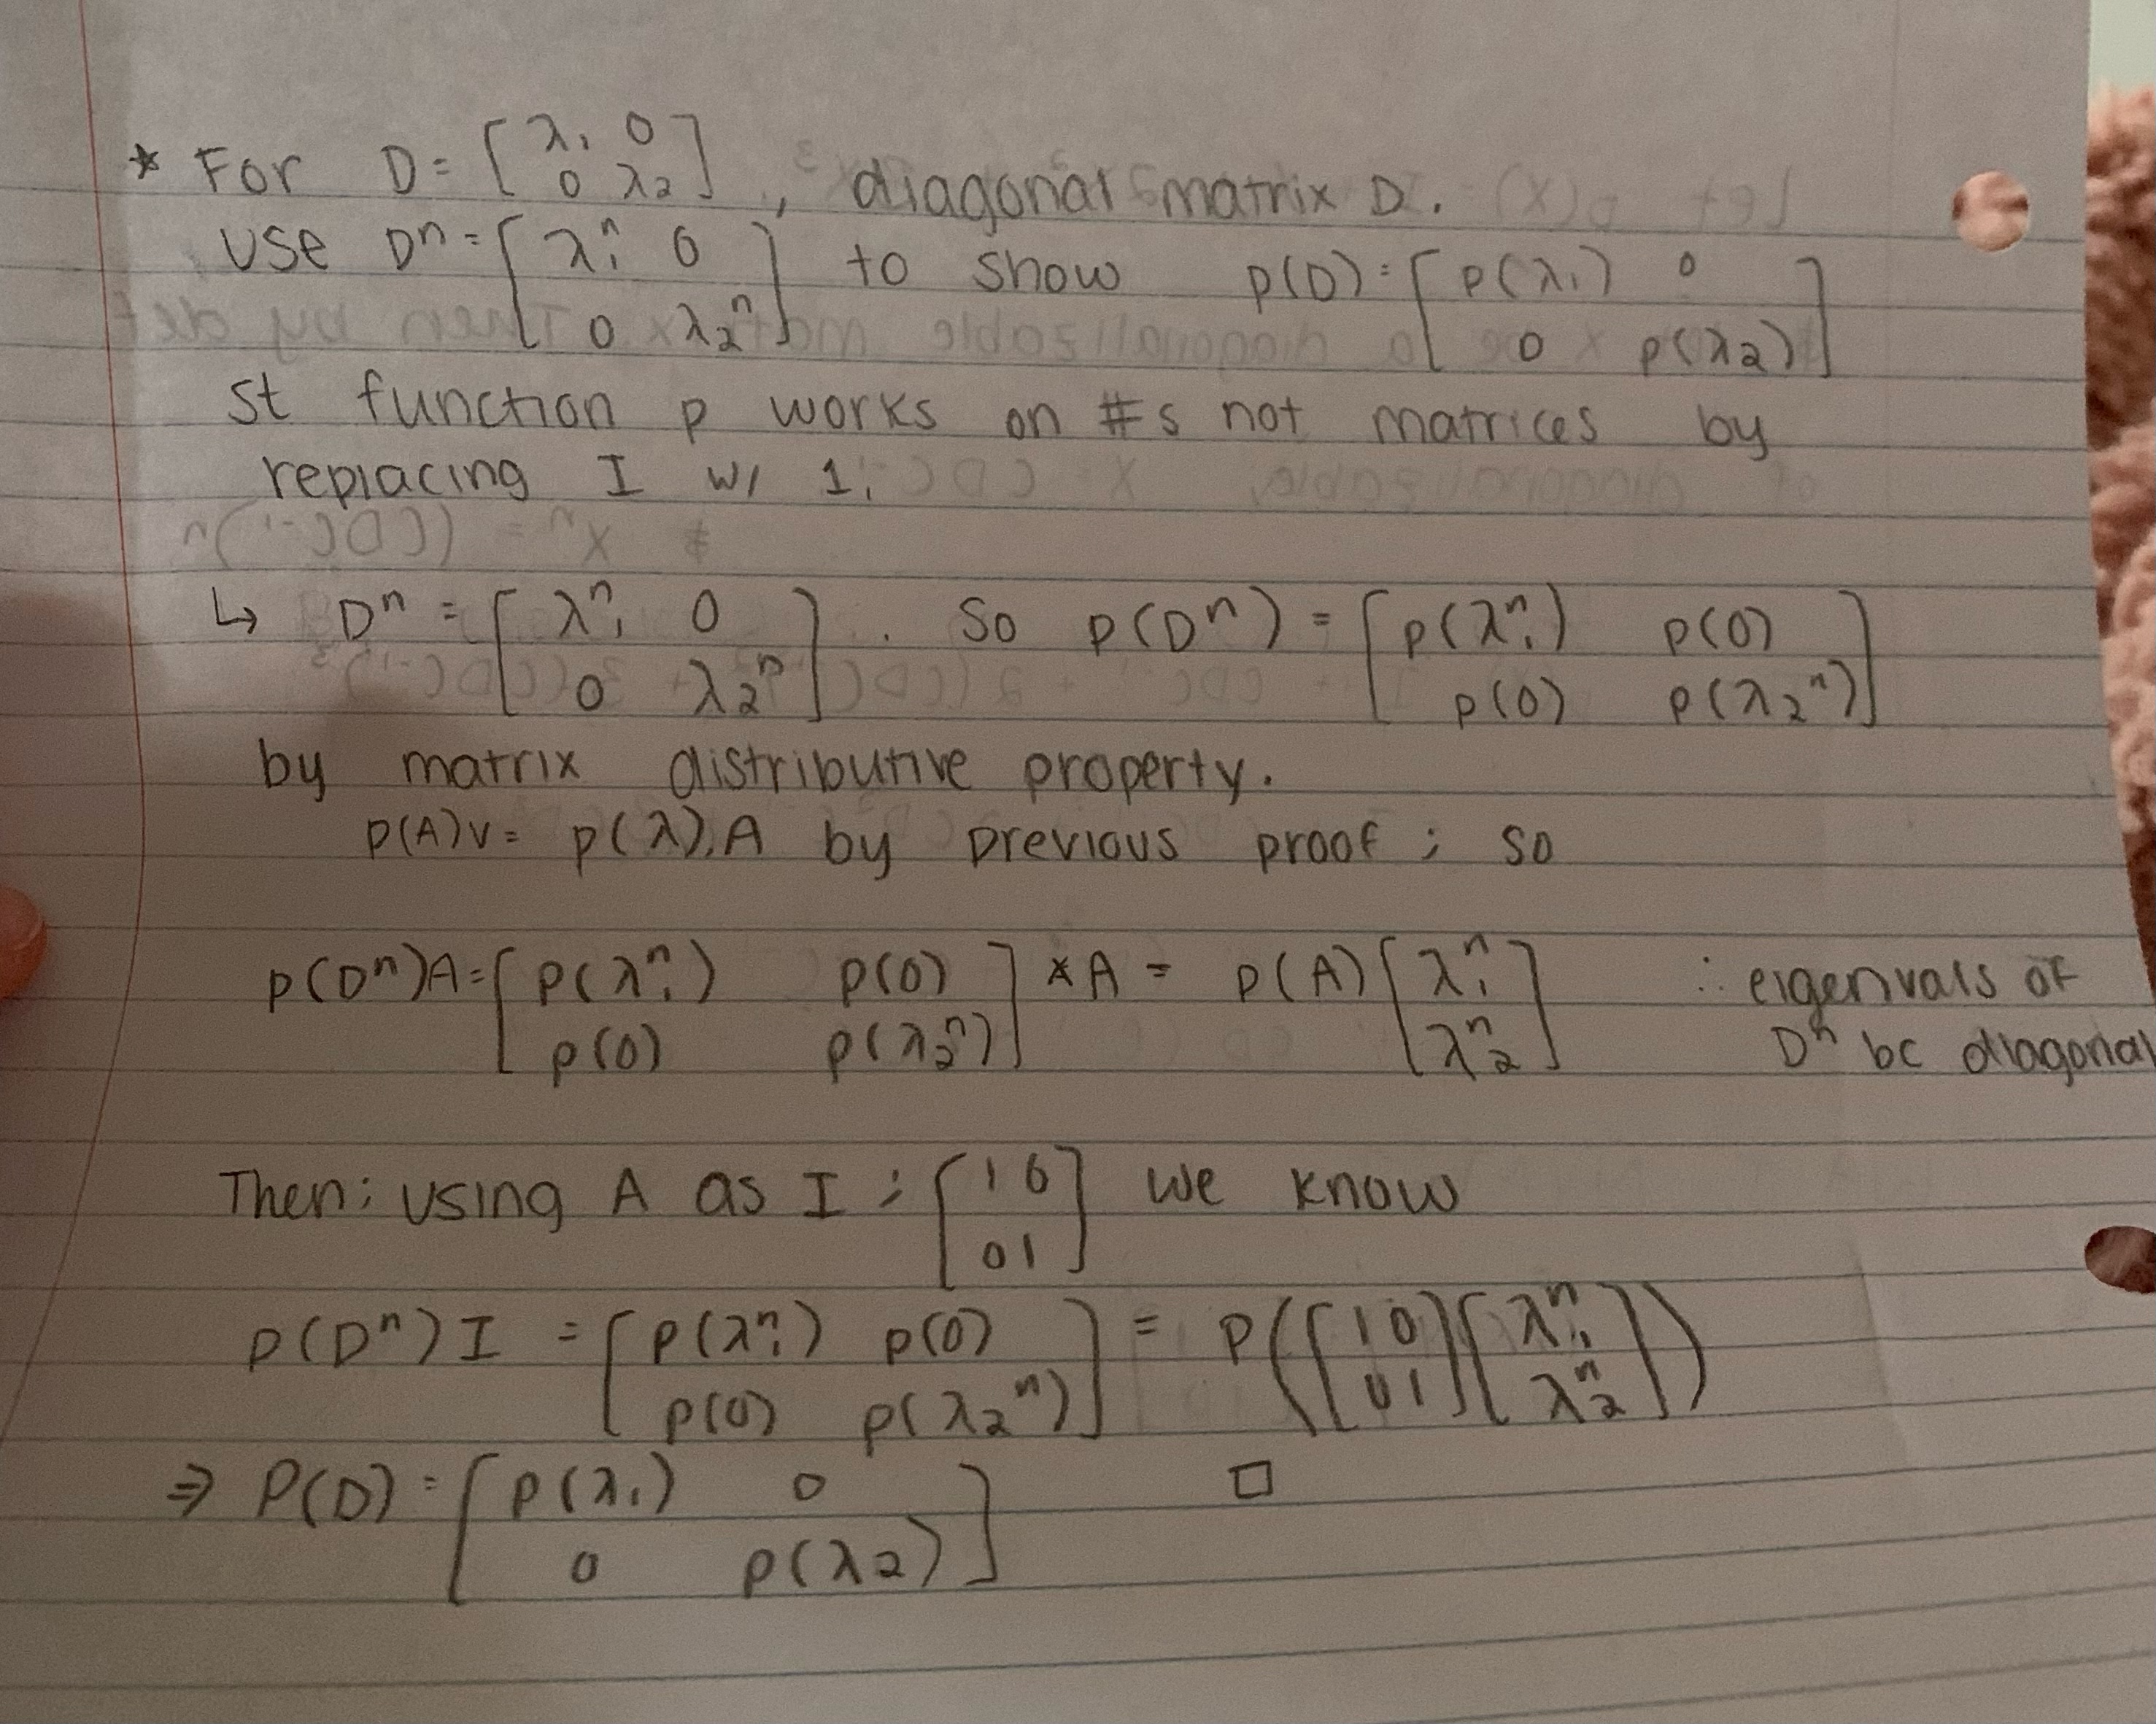 * For D = [λ₁ 0
0 λ₂], diagonal matrix D.
use Dⁿ = [λ₁ⁿ 0
0 λ₂ⁿ] to show p(D) = [p(λ₁) 0
0 p(λ₂)]
st function p works on #s not matrices by
replacing I w/ 1.
↳ Dⁿ = [λ₁ⁿ 0
0 λ₂ⁿ]. So p(Dⁿ) = [p(λ₁ⁿ) p(0)
p(0) p(λ₂ⁿ)]
by matrix distributive property.
p(A)v = p(λ).A by previous proof; so
p(Dⁿ)A = [p(λ₁ⁿ) p(0)
p(0) p(λ₂ⁿ)] * A = p(A)[λ₁ⁿ
λ₂ⁿ] ∵ eigenvals of
Dⁿ bc diagonal
Then; using A as I : [1 0
0 1] we know
p(Dⁿ)I = [p(λ₁ⁿ) p(0)
p(0) p(λ₂ⁿ)] = p([1 0
0 1][λ₁ⁿ
λ₂ⁿ])
⇒ P(D) = [p(λ₁) 0
0 p(λ₂)] □